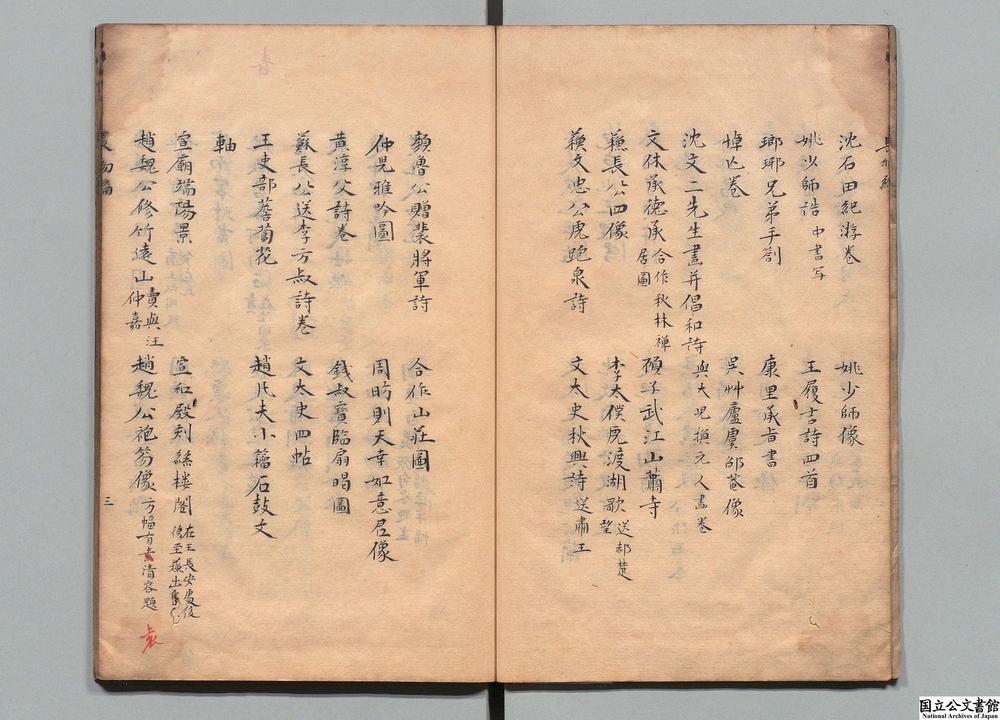 沈石田紀游卷　姚少師像
姚少師誥 中書写　王履吉詩四首
瑯琊兄弟手劄　康里承旨書
悼亡卷　吳艸廬虞邵菴像
沈文二先生畫并倡和詩 與大兒換元人畫卷
文休承德承 合作秋林禅居圖　顧子武江山蕭寺
蘇長公四像　李太僕虎渡湖歌 送郝楚望
蘇文忠公虎跑泉詩　文太史秋興詩 送肅王
顏魯公贈裴將軍詩　合作山莊圖
仲兄雅吟圖　周昉則天幸如意君像
黄淳父詩卷　錢叔寶臨扇唱圖
蘇長公送李方叔詩卷　文太史四帖
王吏部薝蔔花　趙凡夫小籀石鼓文
軸
宣廟端陽景　宣和殿刻絲樓閣 在王長安處後
趙魏公修竹遠山 賣與汪仲嘉　趙魏公袍笏像 方幅有袁清容題
袁
三
国立公文書館
National Archives of Japan